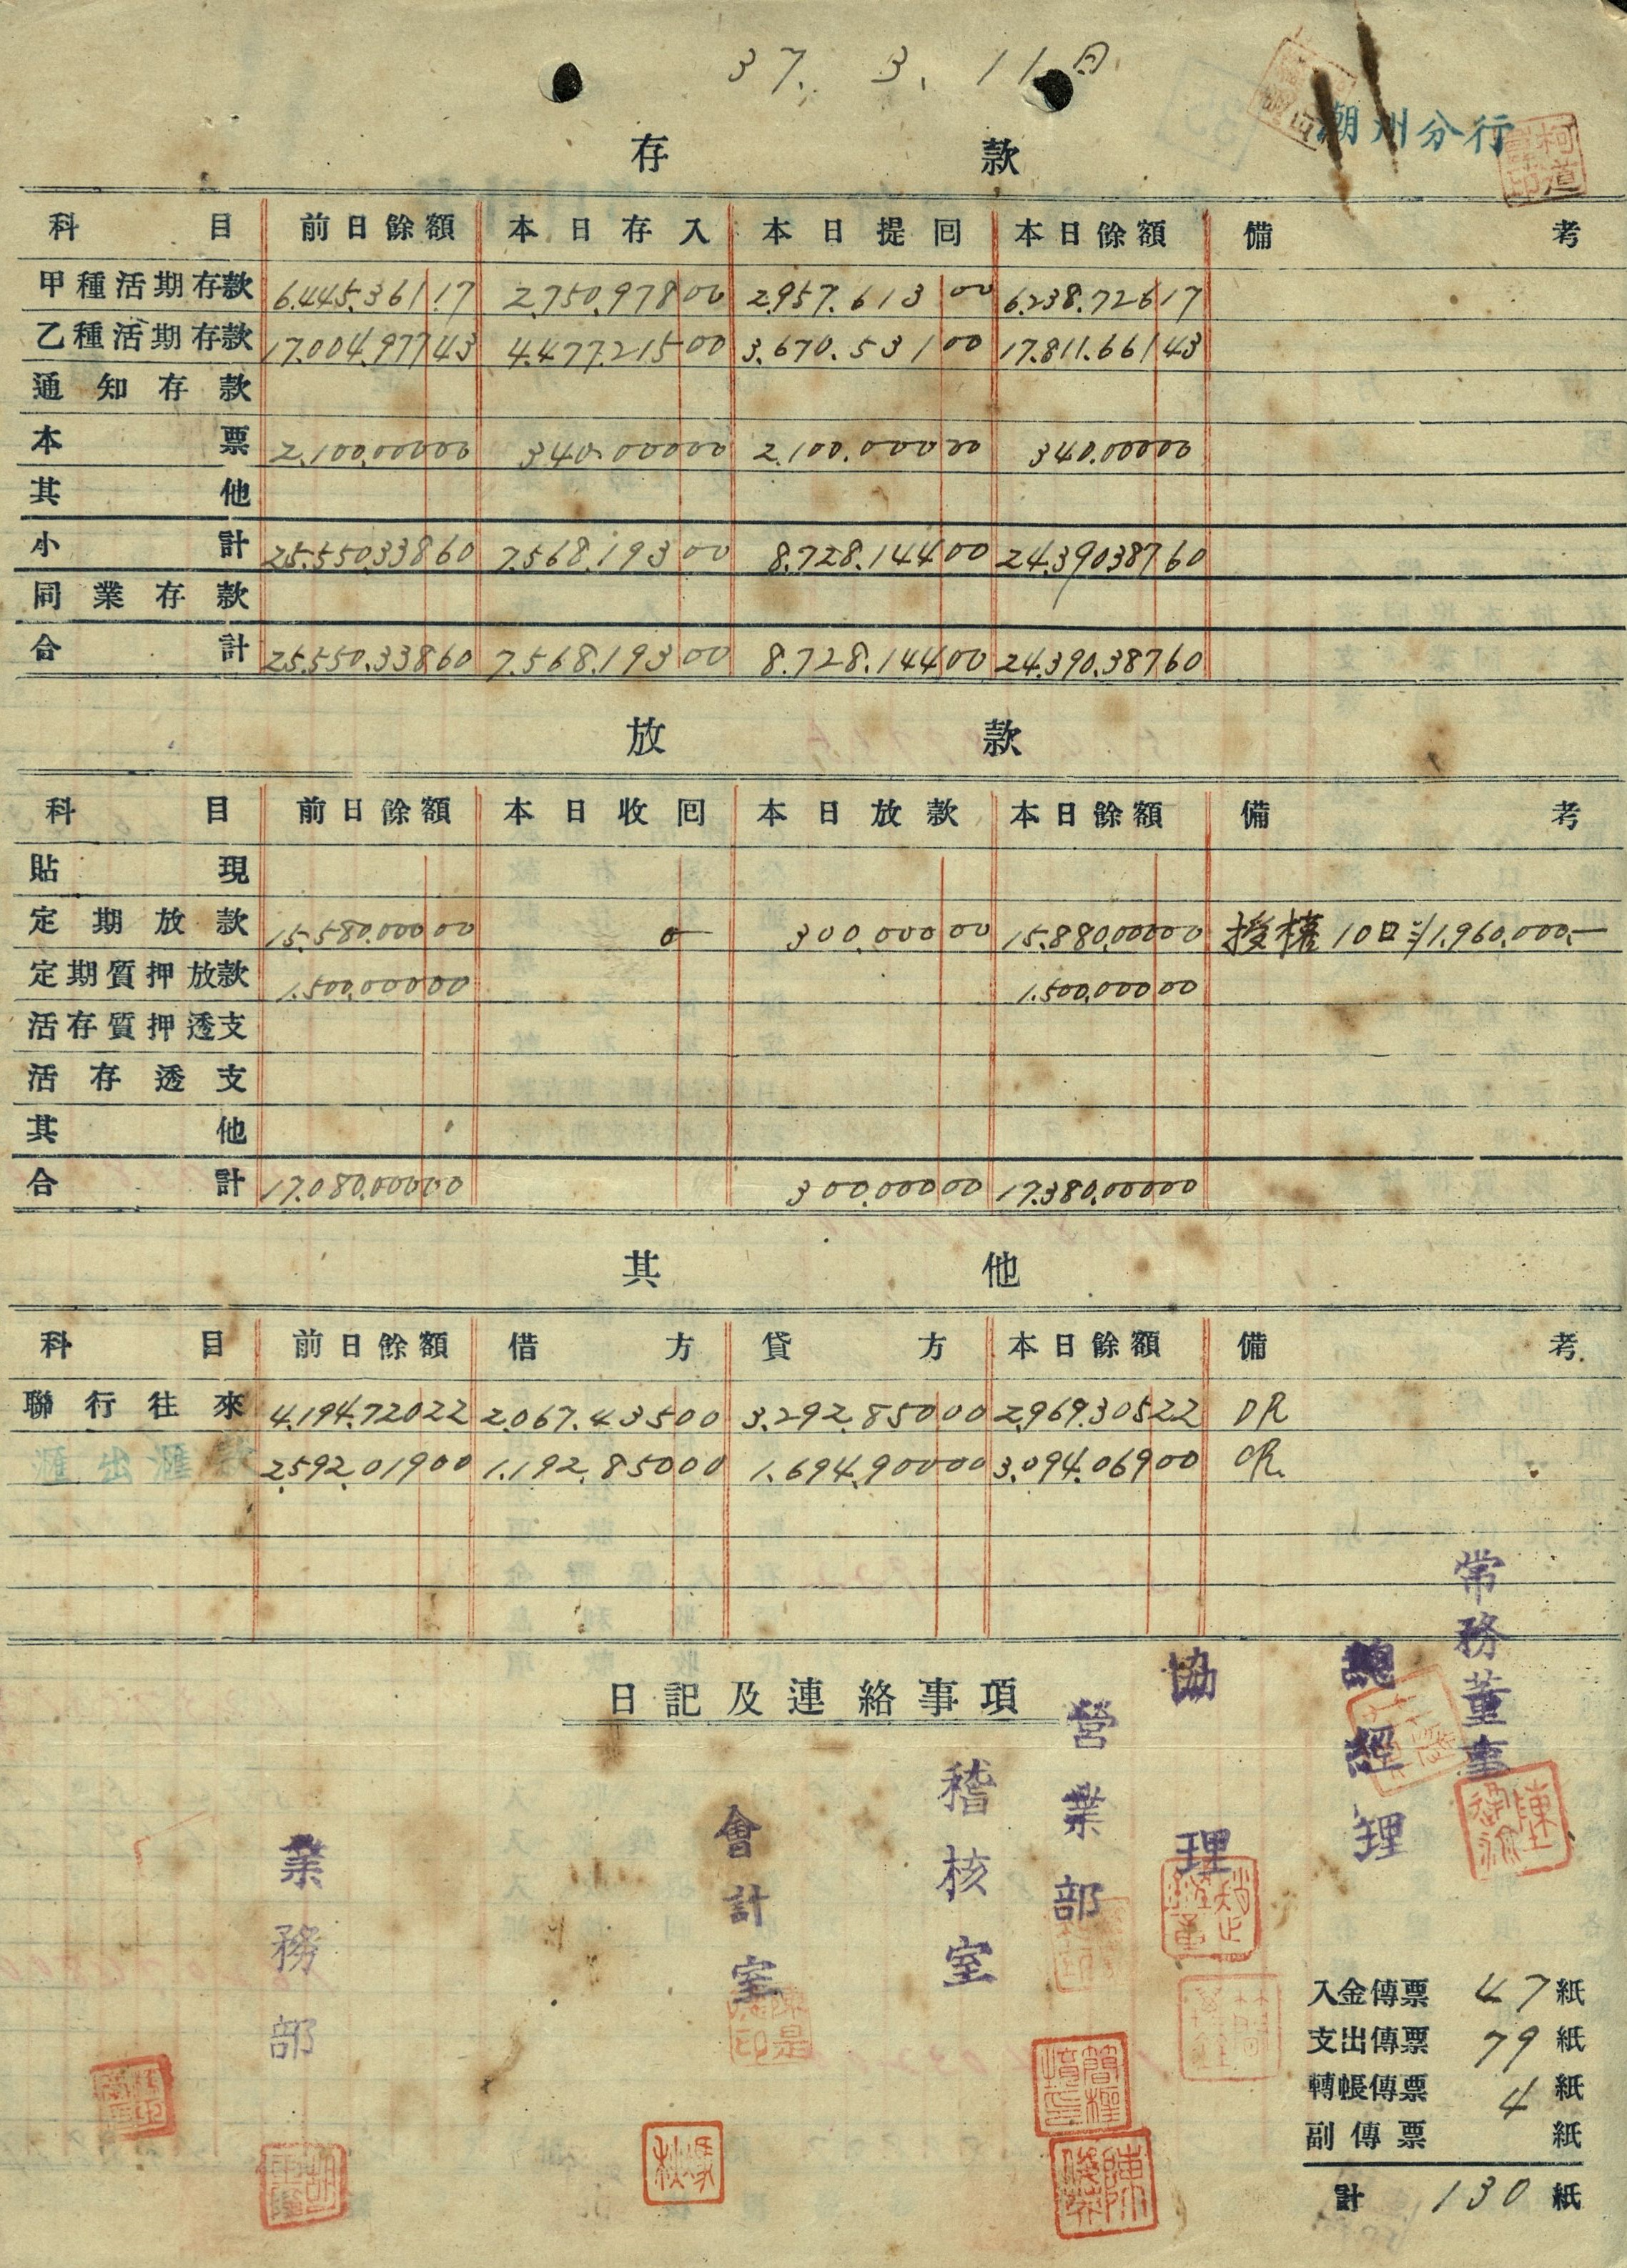 37. 3. 11日
潮州分行
存款
科目 前日餘額 本日存入 本日提囘 本日餘額 備考
甲種活期存款 6.445.361.17 2.750.978 00 2.957.613 00 6.238.726 17
乙種活期存款 17.004.977 43 4.477.215 00 3.670.531 00 17.811.661 43
通知存款
本票 2.100.000 00 340.000 00 2.100.000 00 340.000 00
其他
小計 25.550.338 60 7.568.193 00 8.728.144 00 24.390.387 60
同業存款
合計 25.550.338 60 7.568.193 00 8.728.144 00 24.390.387 60
放款
科目 前日餘額 本日收囘 本日放款 本日餘額 備考
貼現
定期放款 15.580.000 00 0 300.000 00 15.880.000 00 授權 10口 1.960.000.—
定期質押放款 1.500.000 00 1.500.000 00
活存質押透支
活存透支
其他
合計 17.080.000 00 300.000 00 17.380.000 00
其他
科目 前日餘額 借方 貸方 本日餘額 備考
聯行往來 4.194.720 22 2.067.435 00 3.292.850 00 2.969.305 22 DR
滙出滙款 2.592.019 00 1.192.850 00 1.694.900 00 3.094.069 00 CR.
日記及連絡事項
常務董事
總經理
協理
營業部
稽核室
會計室
業務部
入金傳票 47 紙
支出傳票 79 紙
轉帳傳票 4 紙
副傳票 紙
計 130 紙